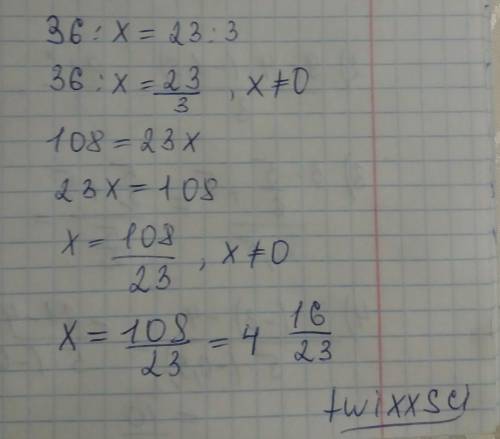 36 : x = 23 : 3
36 : x = 23/3 , x ≠ 0
108 = 23x
23x = 108
x = 108/23 , x ≠ 0
x = 108/23 = 4 16/23